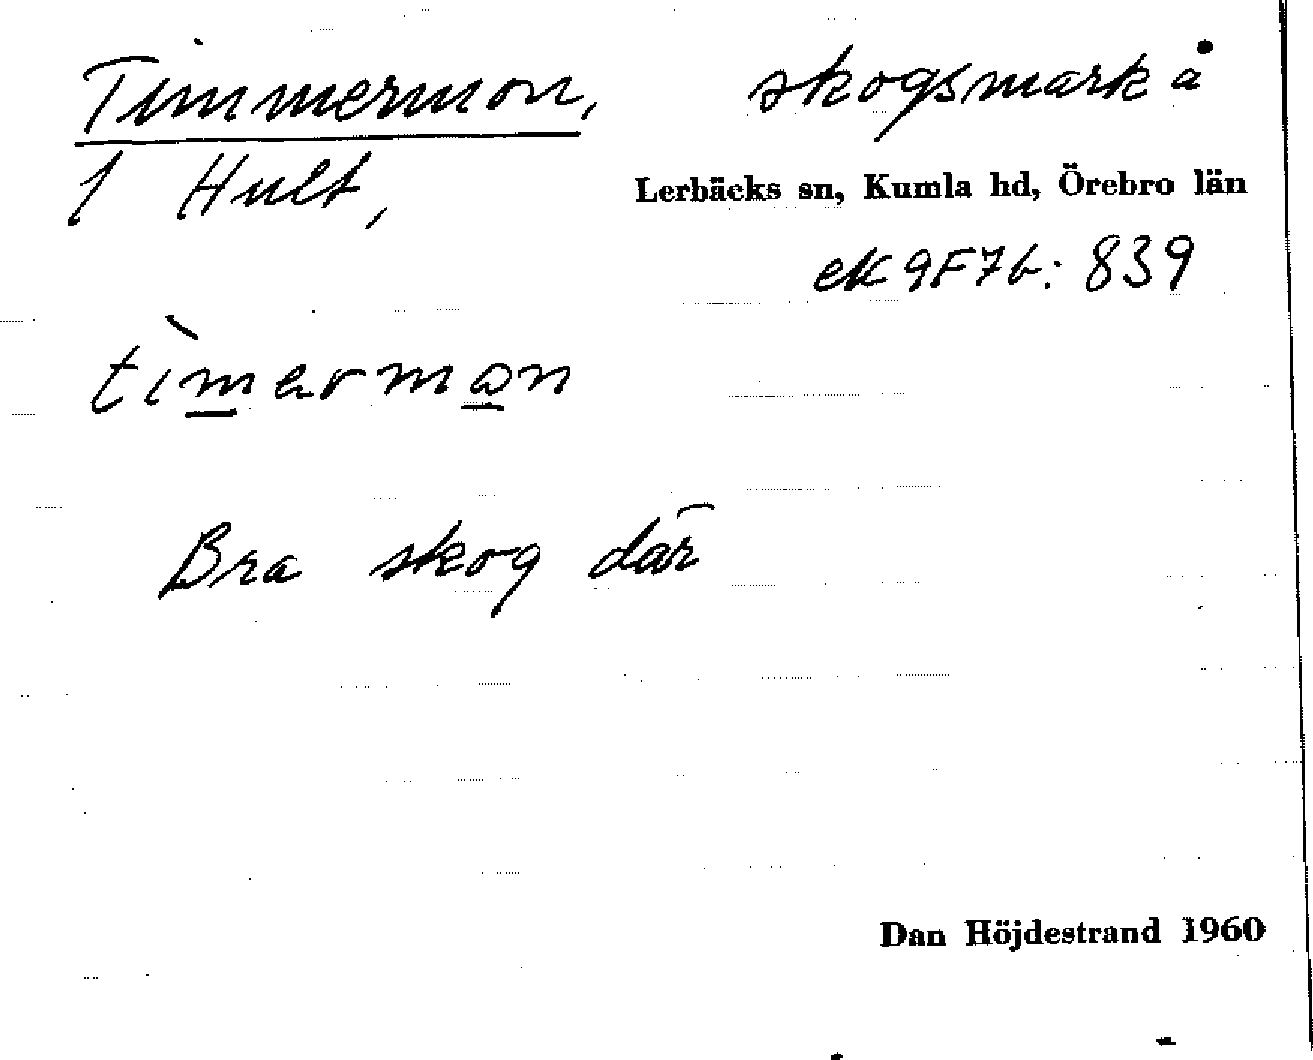 Timmermon, skogsmark å
1 Hult,
Lerbäcks sn, Kumla hd, Örebro län
ek 9F7b: 839
tìmərmon
Bra skog där
Dan Höjdestrand 1960